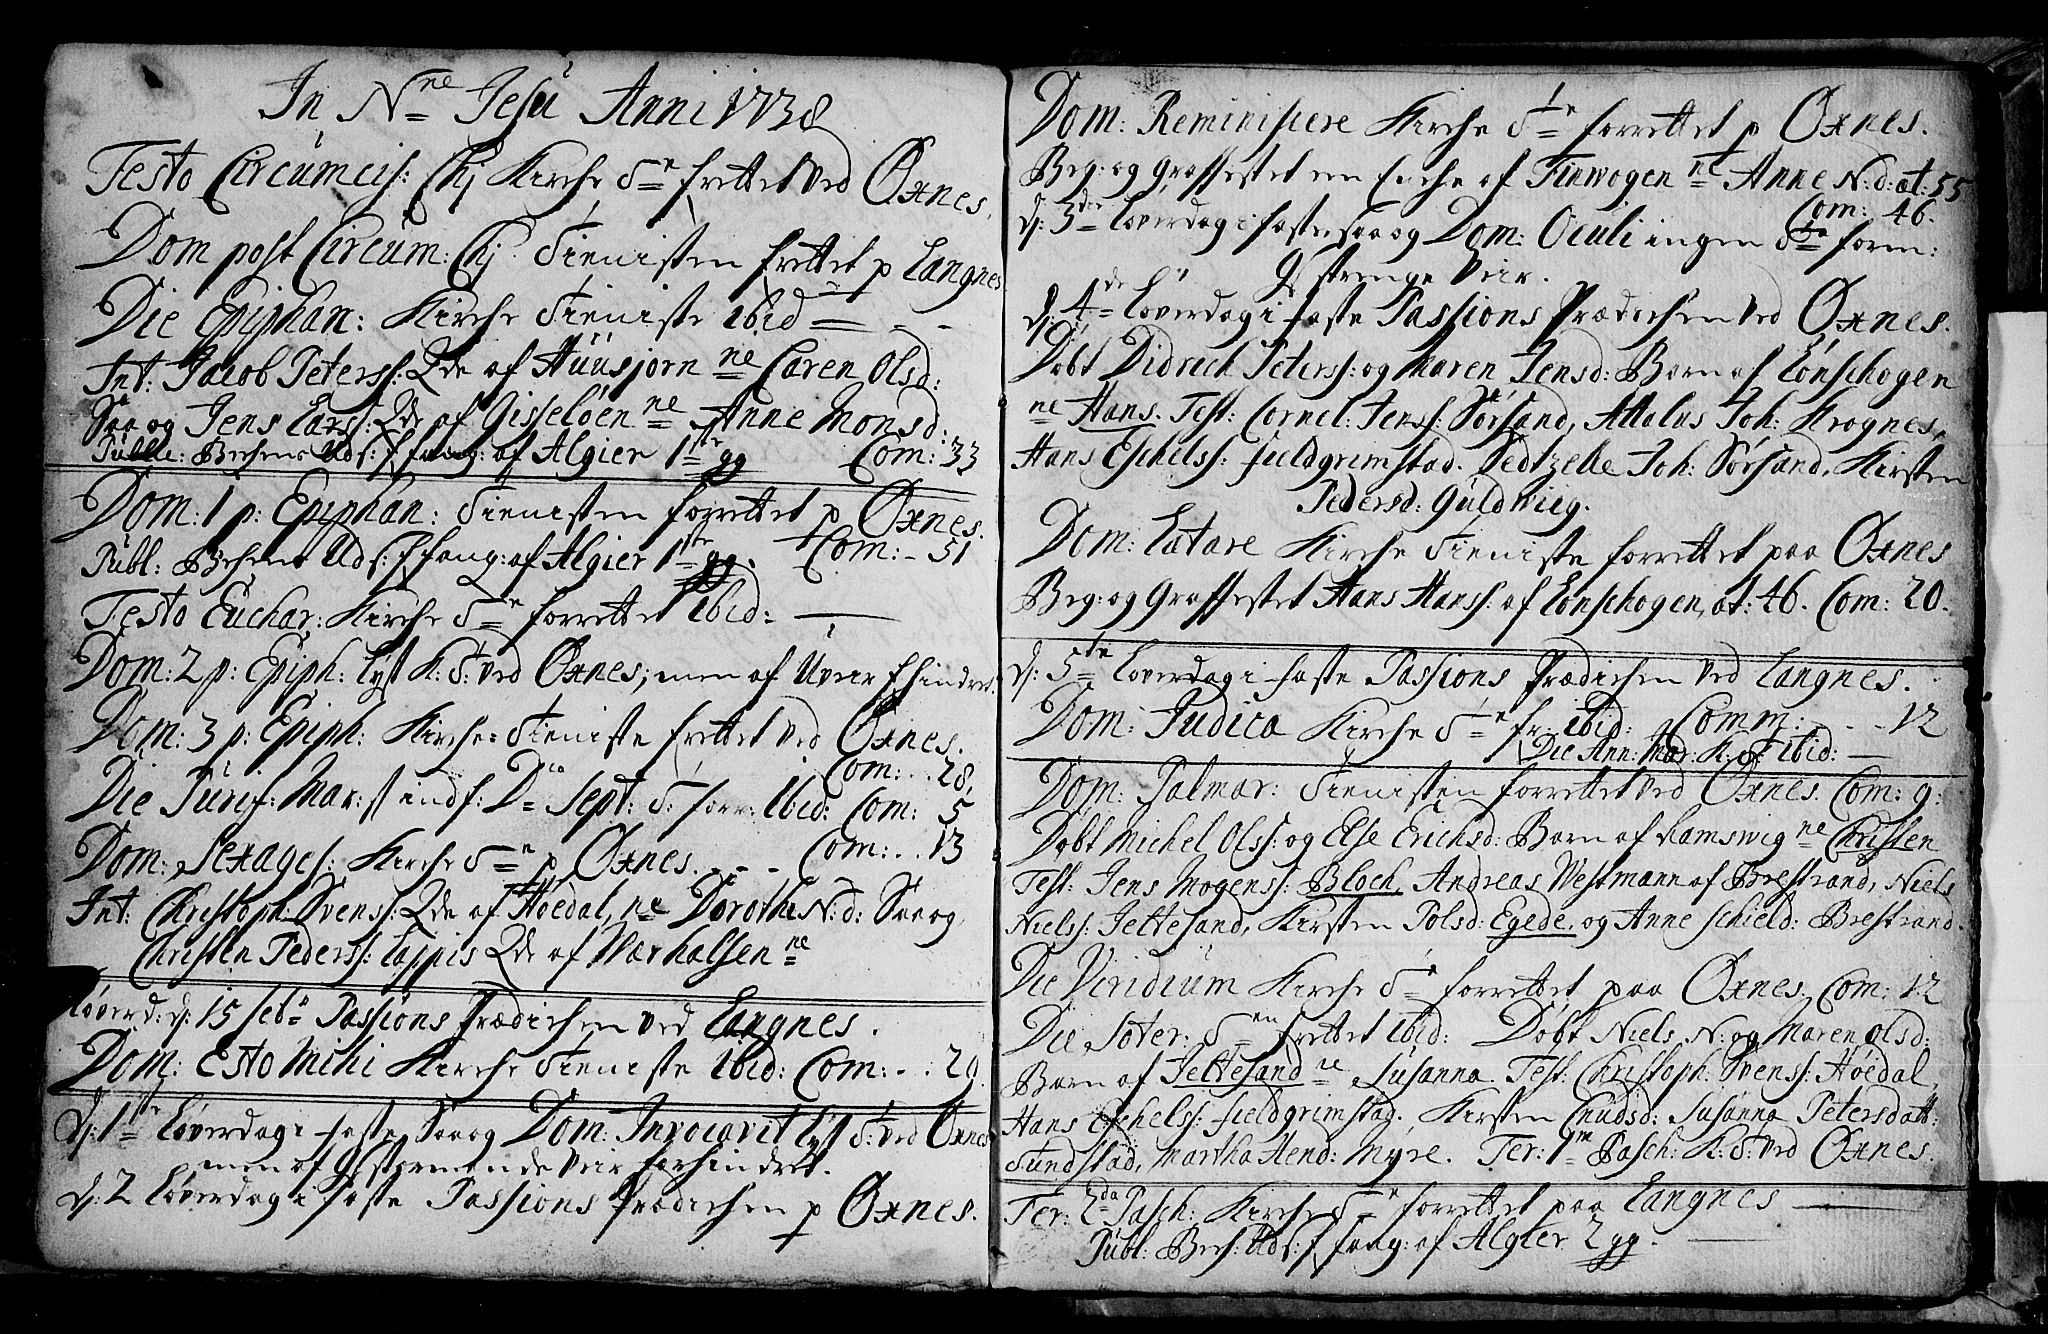 In Nne Jesu Anni 1738
Festo Circumcis: Chj Kirche T-n frettet ved Øxnes.
Dom post Circum: Chj. Tienisten frettet p Langnes
Die Epiphan: Kirche Tieniste ibid
Int: Jacob Peterss: Qde af Huusjorn ne Caren Olsd:
Saa og Jens Larss: Qde af Gisseløen ne Anne Monsd:
Publ: af Algier 1ste gg Com: 33
Dom: 1 p: Epiphan: Tienisten forrettet p Øxnes.
Publ: fang: af Algier 1ste gg. Com: - 51
Festo Euchar: Kirche T-n forrettet ibid:
Dom: 2 p: Epiph: lyst K: T: ved Øxnes; men af Uveir fhindret.
Dom: 3 p: Epiph: Kirche-Tieniste frettet ved Øxnes.
Com: . . 28.
Die Purif: Mar: st indf: D-ca Sept: T: forr: ibid: Com: 5
Dom: Sexages: Kirche T-n p Øxnes. - - Com: . . 13
Int: Christoph: Svens: Qde af Høedal, ne Dorothe N: d: Saa og,
Christen Peders: Lappis Qde af Værhalsen ne
Løverd: d: 15 Feb: Passions Prædichen ved Langnes.
Dom: Esto Mihi Kirche Tieniste ibid: Com: . . 20.
d: 1ste Løverdag i Faste Saa og Dom: Invocavit lyst T: ved Øxnes
men af stormende Veir forhindret.
d: 2 Løverdag i Faste Passions Prædichen p Øxnes.
Dom: Reminiscere Kirche T-n forrettet p Øxnes.
Beg: og Graffestet en Enche af Finvogen ne Anne N: d: æt: 55
Com: 46.
d: 3die Løverdag i Faste, saa og Dom: Oculi ingen T-te form:
strenge Veir.
d: 4de Løverdag i Faste Passions Prædichen ved Øxnes.
Døbt Didrech Peterss: og Maren Jensd: Barn af Lonschogen
ne Hans. Test: Cornel: Jenss: Sørsand, Attalus Joh: Krognes,
Hans Eschelss: Fieldgrimstad. Zedtzelle Joh: Sørsand, Kirsten
Pedersd: Guldwiig.
Dom: Lætare Kirche Tieniste forrettet paa Øxnes
Beg: og Graffestet Hans Hanss: af Lonschogen, æt: 46. Com: 20.
d: 5te Løverdag i Faste Passions Prædichen ved Langnes.
Dom: Judica Kirche T-n fr: ibid: Comm: - - - 12
Die Ann: Mar: K: T: ibid:
Dom: Palmar: Tienisten forrettet ved Øxnes. Com: 9:
Døbt Michel Olss: og Else Erichsd: Barn af Ramswig ne Christen
Test: Jens Mogenss: Bloch, Andreas Westmann af Brestrand, Niels
Nielss: Jeltesand, Kirsten Polsd: Egede, og Anne Schield: Brestrand.
Die Viridium Kirche T-n forrettet paa Øxnes, Com: 12
Die Soter: T-en frettet ibid: Døbt Niels N: og Maren Olsd:
Barn af Jeltesand ne Susanna Test: Christoph: Svens: Høedal,
Hans Eschelss: Fieldgrimstad. Kirsten Cnudsd: Susanna Petersdatt:
Sundstad, Martha Hend: Myre. Fer: 1m Pasch: K: T: ved Øxnes.
Fer: 2da Pasch: Kirche T-n forrettet paa Langnes
Publ: fang: af Algier 2 gg.